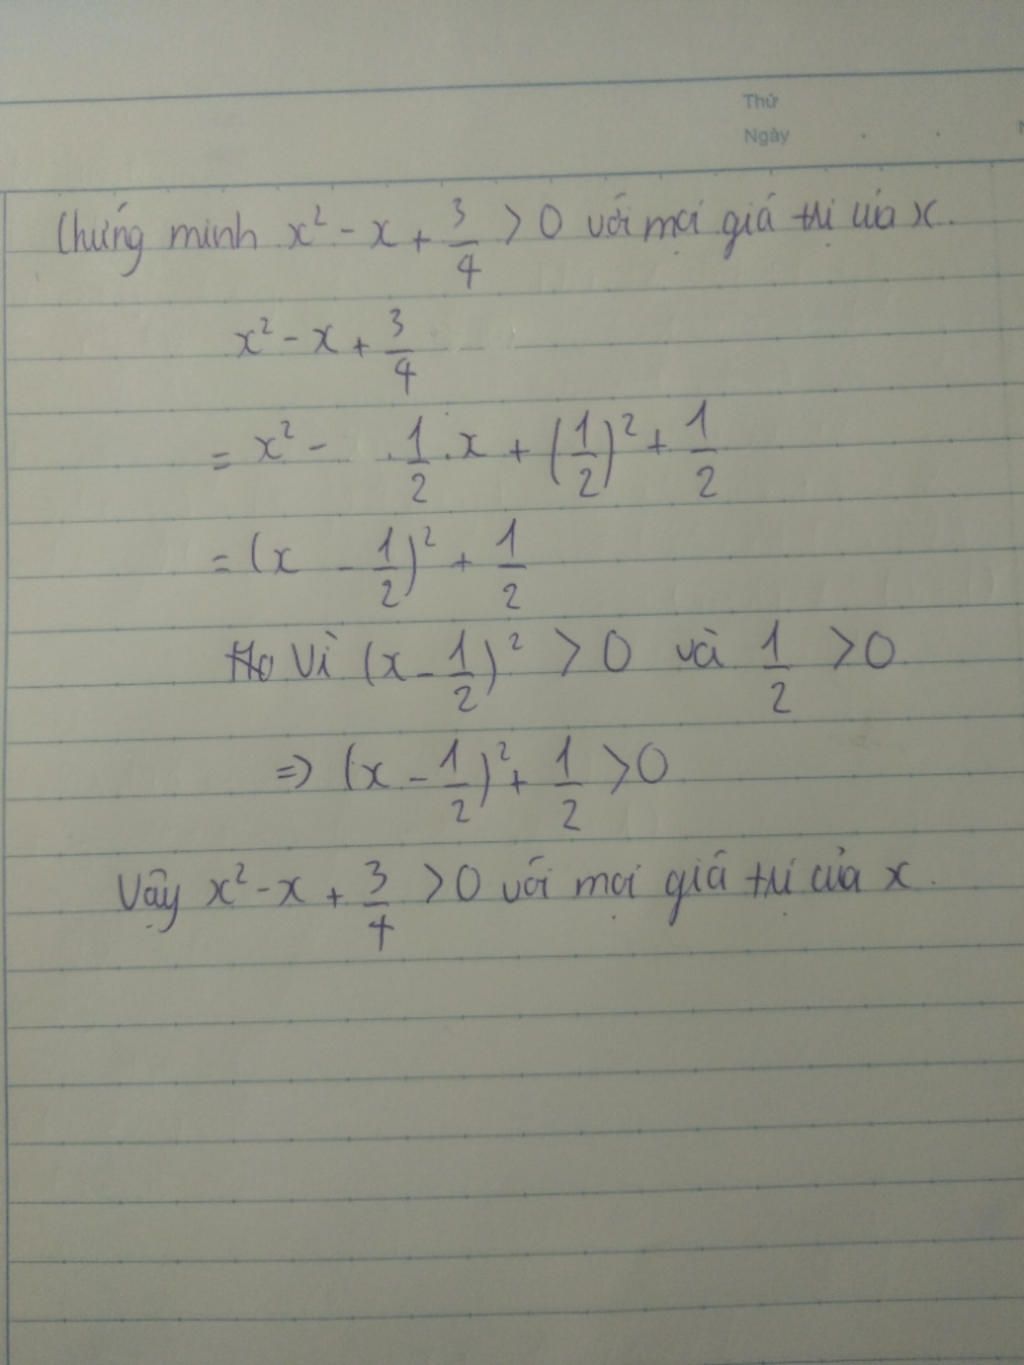 Thứ
Ngày
Chứng minh x² - x + 3/4 > 0 với mọi giá trị của x.
x² - x + 3/4
= x² - . 1/2 . x + (1/2)² + 1/2
= (x - 1/2)² + 1/2
Vì (x - 1/2)² > 0 và 1/2 > 0
=> (x - 1/2)² + 1/2 > 0
Vậy x² - x + 3/4 > 0 với mọi giá trị của x.